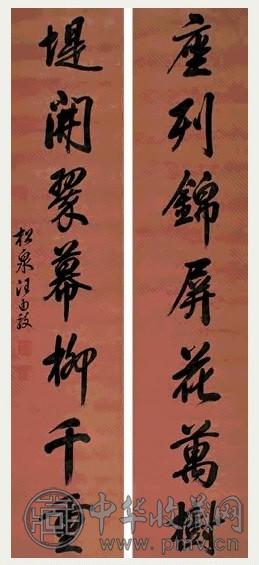 座列錦屏花萬樹
堤開翠幕柳千重
松泉汪由敦
中华收藏网
www.pmv.cn